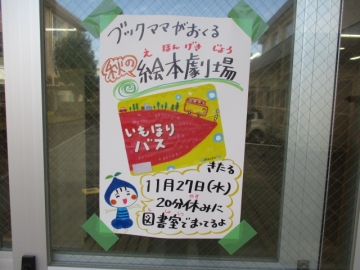 ブックママがおくる
秋の
えほんげきじょう
絵本劇場
いもほり
バス
きたる
11月27日(水)
20分休みに
図書室でまってるよ